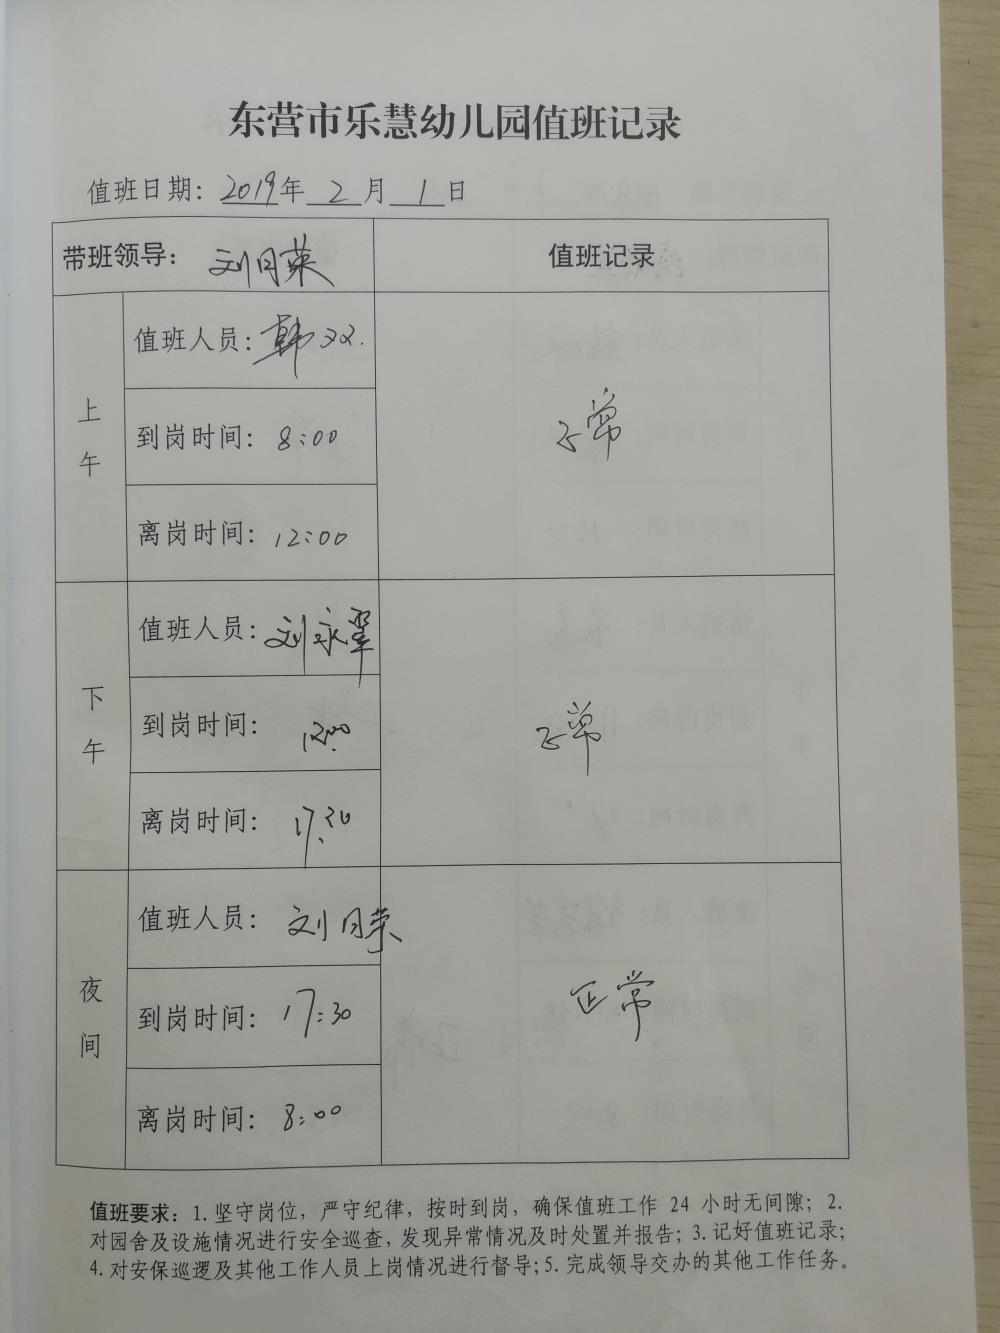 东营市乐慧幼儿园值班记录
值班日期：2019年 2 月 1 日
带班领导：刘月荣 值班记录
上午
值班人员：韩双.
到岗时间：8:00
离岗时间：12:00
正常
下午
值班人员：刘永翠
到岗时间：12:00
离岗时间：17:30
正常
夜间
值班人员：刘月荣
到岗时间：17:30
离岗时间：8:00
正常
值班要求：1. 坚守岗位，严守纪律，按时到岗，确保值班工作 24 小时无间隙；2.
对园舍及设施情况进行安全巡查，发现异常情况及时处置并报告；3. 记好值班记录；
4. 对安保巡逻及其他工作人员上岗情况进行督导；5. 完成领导交办的其他工作任务。